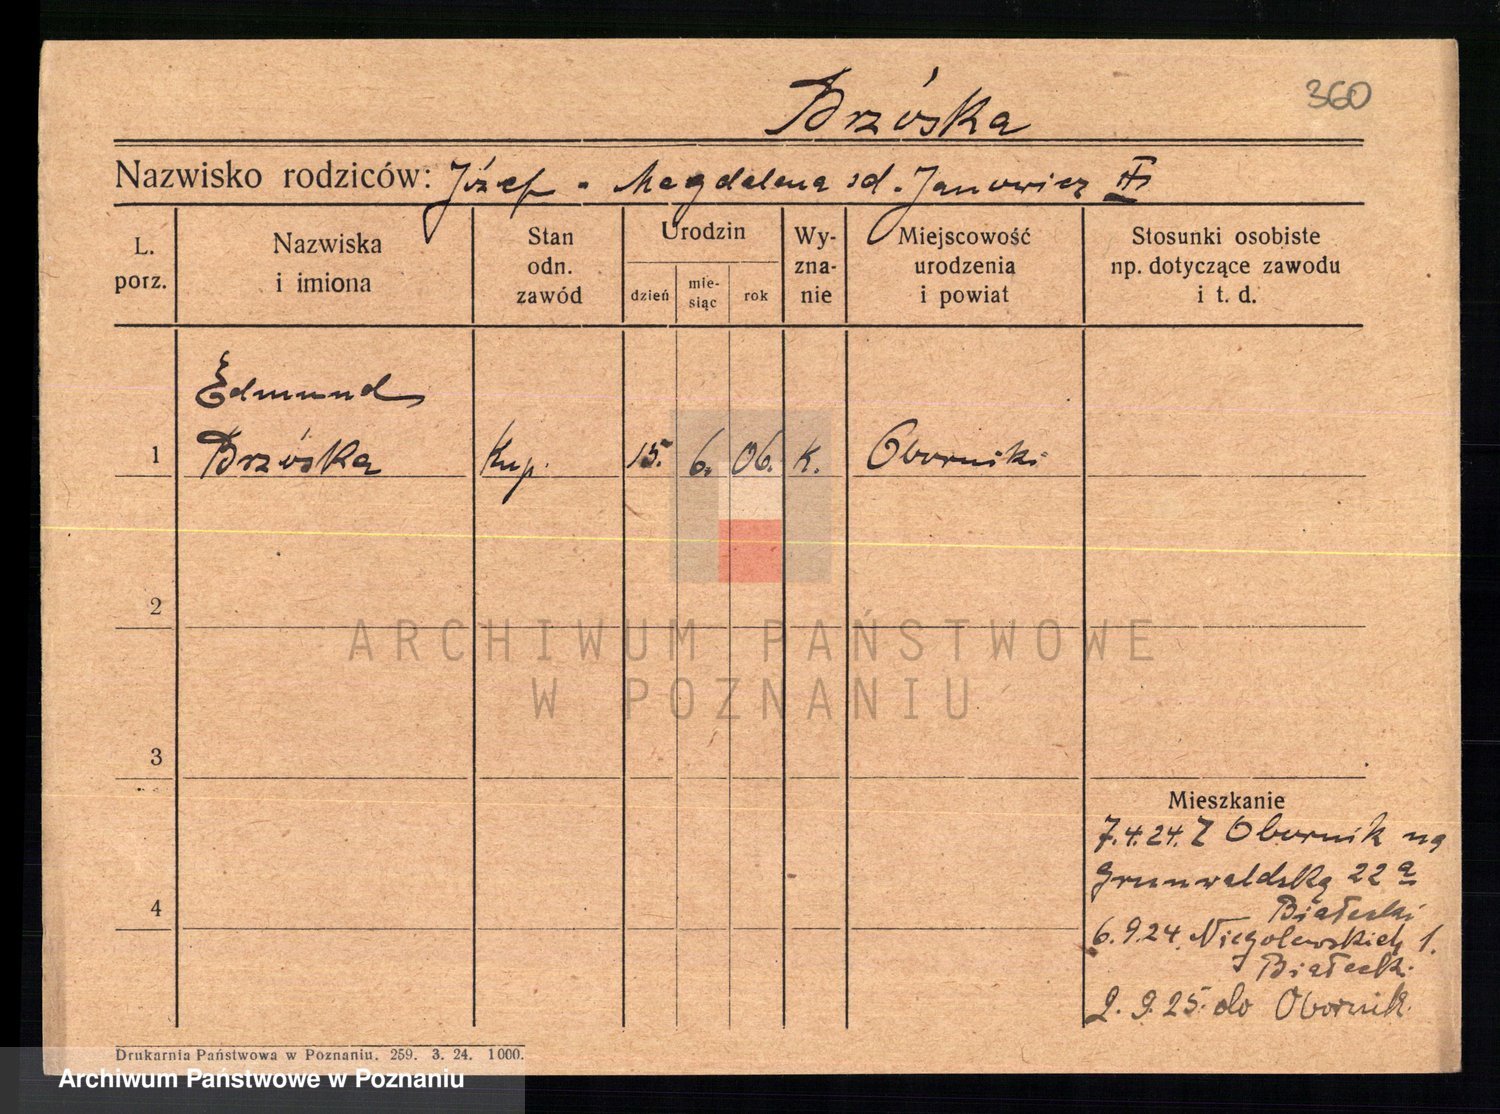 Brzóska
360
Nazwisko rodziców: Józef - Magdalena zd. Janowicz
L. porz.
Nazwiska i imiona
Stan odn. zawód
Urodzin
dzień
mie-siąc
rok
Wy-zna-nie
Miejscowość urodzenia i powiat
Stosunki osobiste np. dotyczące zawodu i t. d.
Edmund
1 Brzóska Kup. 15. 6. 06. K. Oborniki
2
ARCHIWUM PAŃSTWOWE
W POZNANIU
3
Mieszkanie
7.4.24. Z Obornik na
Grunwaldską 22 a
4
Białecki
6.9.24. Niegolewskich 1.
Białecki
2. 9. 25. do Obornik.
Drukarnia Państwowa w Poznaniu. 259. 3. 24. 1000.
Archiwum Państwowe w Poznaniu